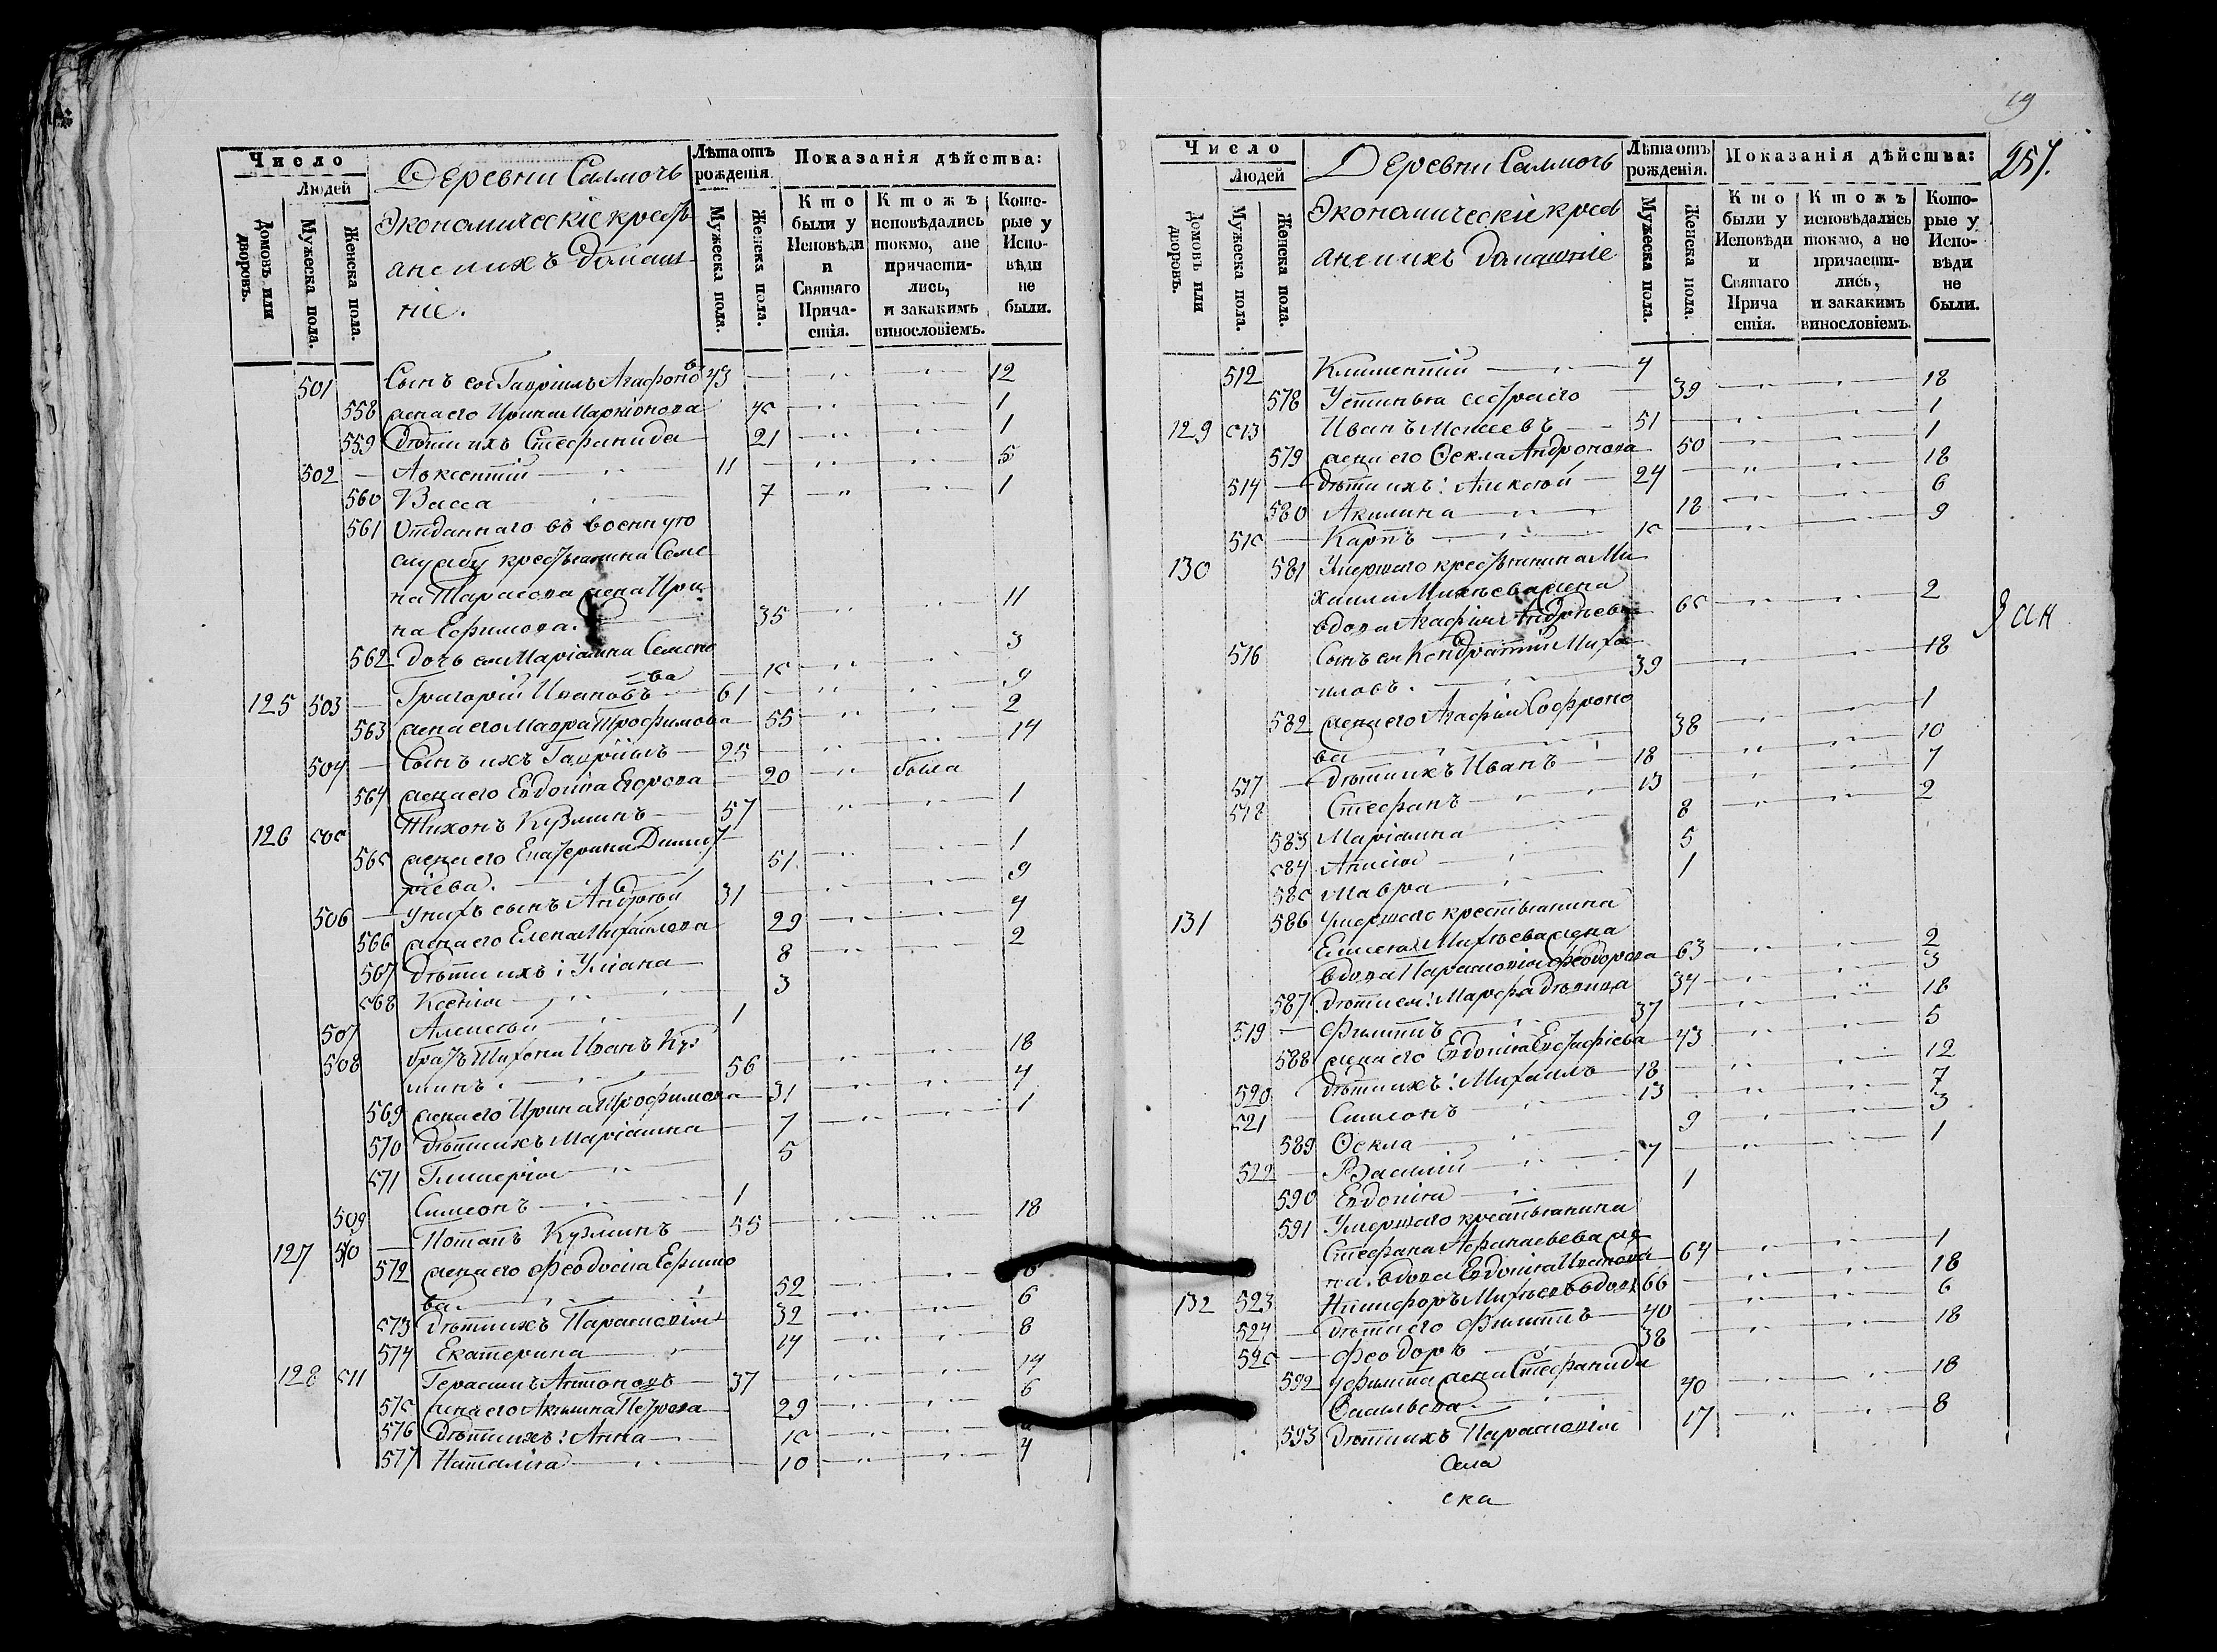 Число
Людей
Домовъ или дворовъ.
Мужеска пола.
Женска пола.
Деревни Салмочь
Экономическіе кресть
ане и ихъ домаш
ніе.
Лѣта отъ рожденія.
Мужеска пола.
Женска пола.
Показанія дѣйства:
Кто были у Исповѣди и Святаго Прича-стія.
Ктожъ исповѣдались токмо, а не причасти-лись, и закакимъ винословіемъ.
Кото-рые у Испо-вѣди не были.
501 Сынъ ея Гавріилъ Агафоно въ 43 12
558 жена его Ирина Маркіонова 45 1
559 Дѣти ихъ Стефанида 21 1
502 Авксентій 11 5
560 Васса 7 1
561 Отданнаго въ военную
службу крестьянина Семе
на Тарасова жена Ири
на Ефимова. 35 11
562 дочь ея Маріамна Семено
ва 15 3
125 503 Григорій Ивановъ 61 9
563 жена его Мавра Трофимова 55 2
504 Сынъ ихъ Гавріилъ 25 14
564 жена его Евдокіа Егорова 20 была
126 505 Тихонъ Кузминъ 57 1
565 жена его Екатерина Димит
ріева. 51 1
506 у нихъ сынъ Андрей 31 9
566 жена его Елена Михайлова 29 4
567 дѣти ихъ: Уліана 8 2
568 Ксеніа 3
507 Алексѣй 1
508 братъ Тихона Иванъ Куз
минъ. 56 18
569 жена его Ирина Трофимова 31 4
570 дѣти ихъ Маріамна 7 1
571 Гликеріа 5
509 Симеонъ 1
127 510 Потапъ Кузминъ 55 18
572 жена его Феодосіа Ефимо
ва 52
573 дѣти ихъ Параскевіа 32 6
574 Екатерина 14 8
128 511 Герасимъ Антоновъ 37 14
575 жена его Акилина Петрова 29 6
576 Дѣти ихъ: Анна 15
577 Наталіа 10 4
19
257.
Число
Людей
Домовъ или дворовъ.
Мужеска пола.
Женска пола.
Деревни Салмочь
Экономическіе кресть
ане и ихъ домашніе
Лѣта отъ рожденія.
Мужеска пола.
Женска пола.
Показанія дѣйства:
Кто были у Исповѣди и Святаго Прича стія.
Ктожъ исповѣдались токмо, а не причасти-лись, и закакимъ винословіемъ.
Кото-рые у Испо-вѣди не были.
512 Климентій 4
578 Устинья сестра его 39 18
129 513 Иванъ Моисеевъ 51 1
579 жена его Ѳекла Андронова 50 1
514 Дѣти ихъ: Алексѣй 24 18
580 Акилина 18 6
515 Карпъ 15 9
130 581 Умершаго крестьянина Ми
хаила Михѣева жена
вдова Агафіа Андрѣева 65 2
516 Сынъ ея Кондратій Миха
иловъ. 39 18
582 жена его Агафіа Софроно
ва 38 1
517 Дѣти ихъ Иванъ 18 10
518 Стефанъ 13 7
583 Маріамна 8 2
584 Анисіа 5
585 Мавра 1
131 586 Умершаго крестьянина
Елисея Михѣева жена
вдова Параскевіа Феодорова 63 2
587 Дѣти ея: Марфа дѣвица 34 3
519 Филиппъ 37 18
588 жена его Евдокіа Евстафіева 43 5
520 Дѣти ихъ: Михаилъ 18 12
521 Симеонъ 13 7
589 Ѳекла 9 3
522 Василій 7 1
590 Евдокіа 1
591 Умершаго крестьянина
Стефана Афанасьева же
на вдова Евдокіа Иванова 64 1
132 523 Никифоръ Михѣевъ вдовъ 66 18
524 Дѣти его Филиппъ 40 6
525 Феодоръ 38 18
592 у Филиппа жена Стефанида
Васильева 40 18
593 Дѣти ихъ Параскевіа 17 8